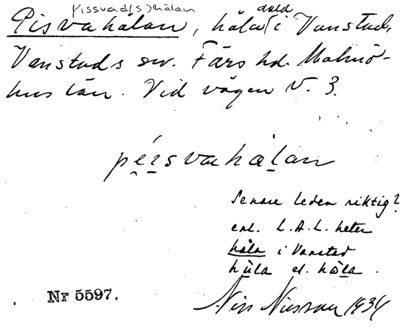 Pissvad(s)hålan
Pisvahålan, håla i Vanstad,
Vanstads sn. Färs hd. Malmö-
hus län. Vid vägen V. 3.
Senare leden riktig?
enl. L.A.L. heter
håla i Vanstad
hùla el. hòla.
Nr 5597.
Nils Nilsson 1934